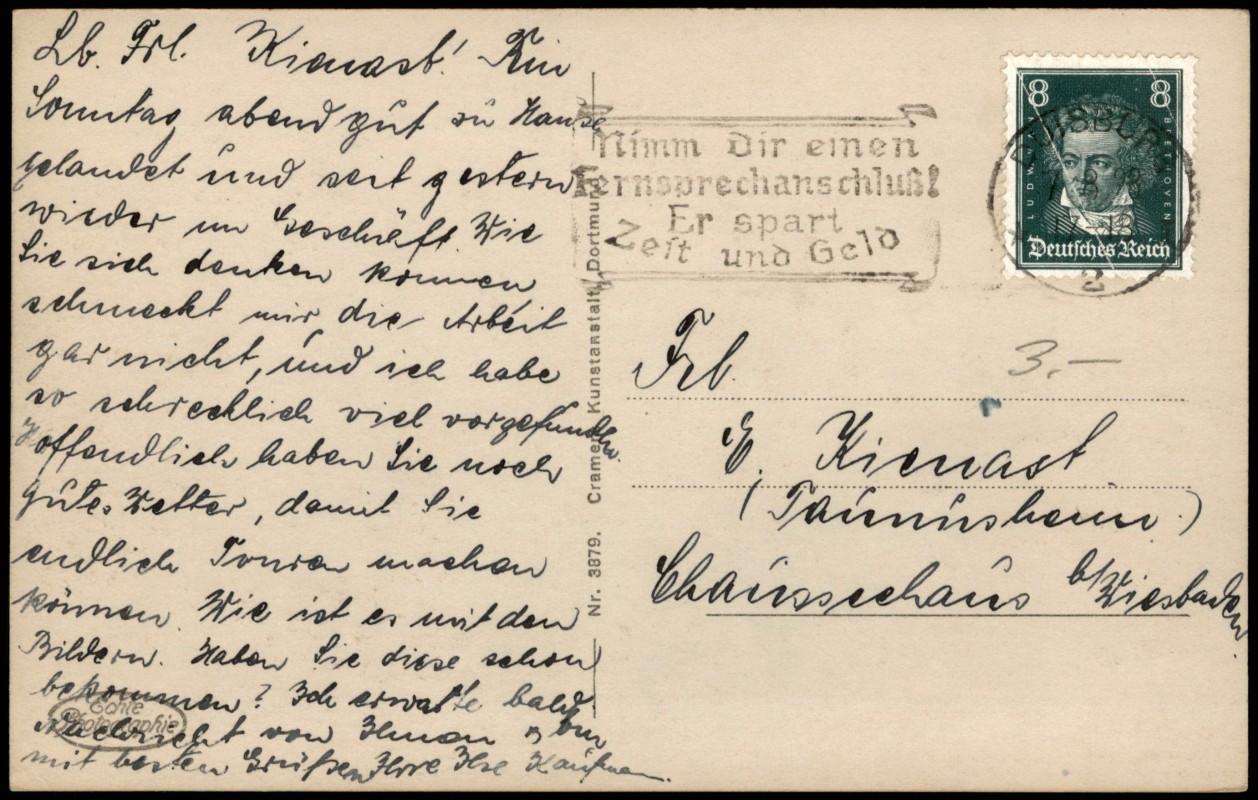 Lb. Frl. Kienast! Bin
Sonntag abend gut zu Hause
gelandet und seit gestern
wieder im Geschäft. Wie
Sie sich denken können
schmeckt mir die Arbeit
gar nicht, und ich habe
so schrecklich viel vorgefunden.
Hoffendlich haben Sie noch
gutes Wetter, damit Sie
endlich Touren machen
können. Wie ist es mit den
Bildern. Haben Sie diese schon
bekommen? Ich erwarte bald
Nachricht von Ihnen u. bin
mit besten Grüßen Ihre Ilse Kaufmann.
Echte
Photographie
Nr. 3879. Cramers Kunstanstalt, Dortmund
Nimm Dir einen
Fernsprechanschluß!
Er spart
Zeit und Geld
DUISBURG
2
8 8
LUDWIG V. BEETHOVEN
Deutsches Reich
3.-
Frl.
E. Kienast
(Taunusheim.)
Chausseehaus b/Wiesbaden.